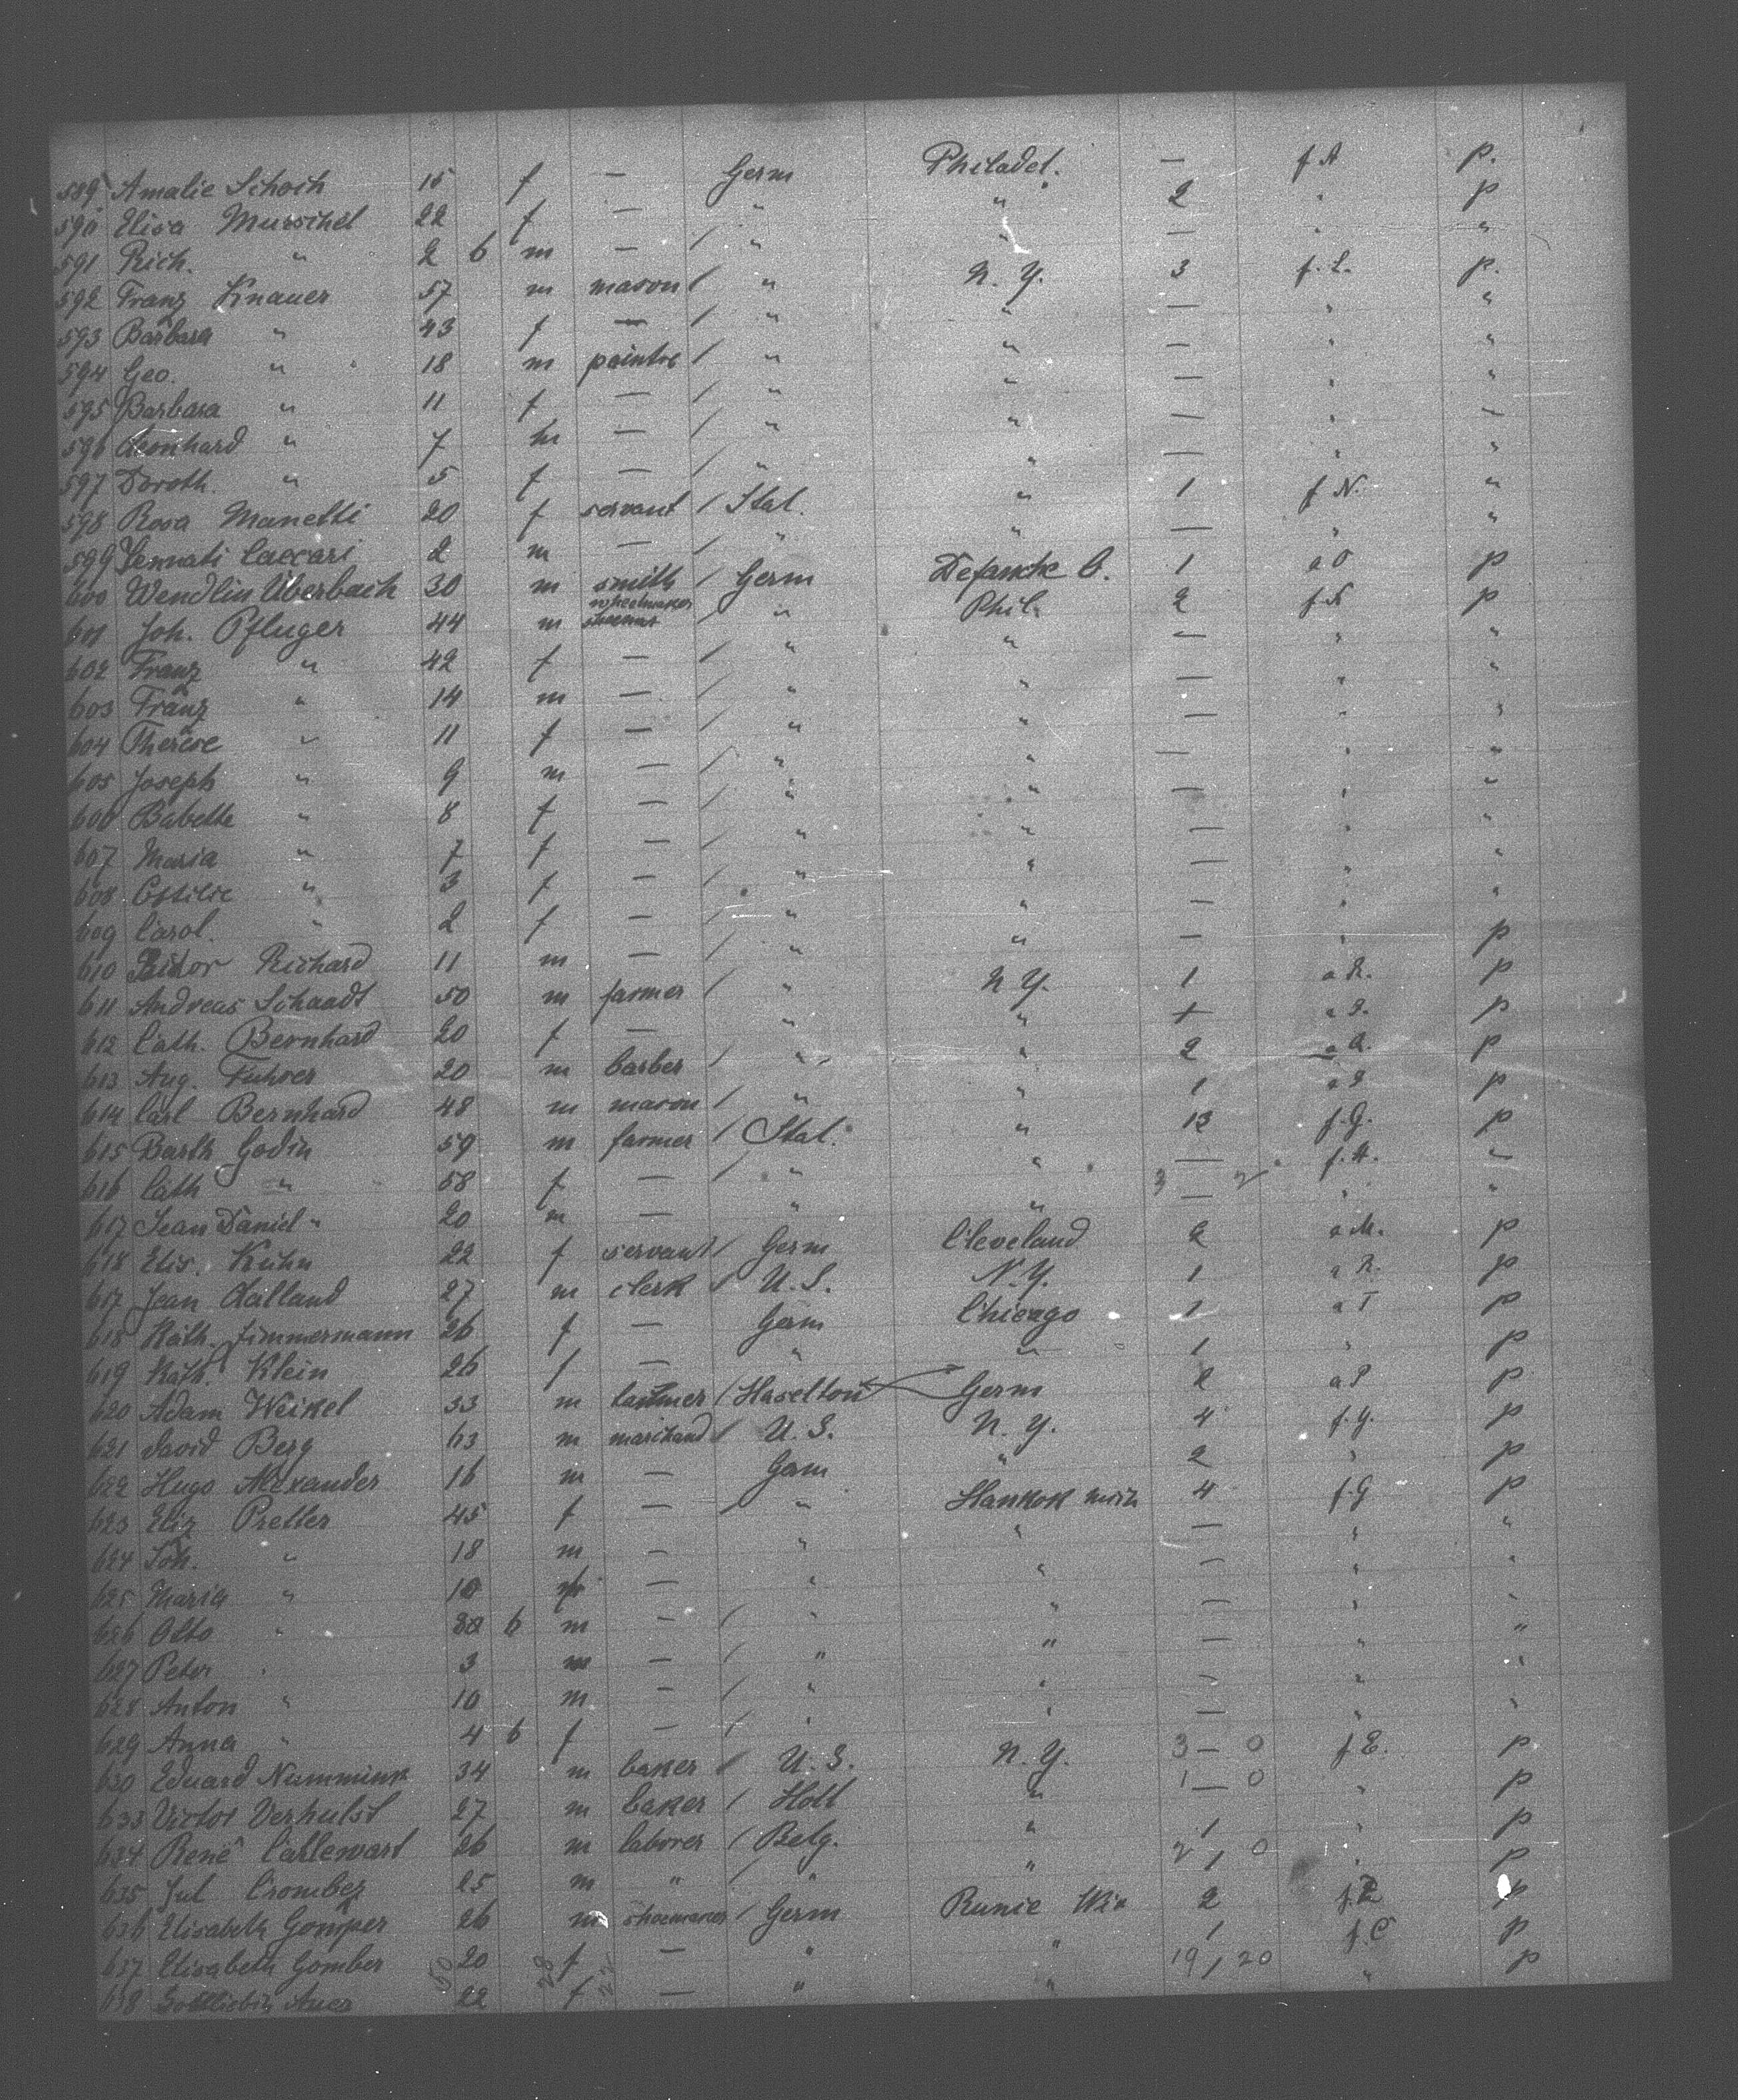 589 Amalie Schoch 15 f — Germ Philadel. — f A p.
590 Elisa Murschel 22 f — " " 2 " p
591 Rich. " 2 6 m — / " " — " "
592 Franz Knauer 57 m mason / " N. Y. 3 f. L. p.
593 Barbara " 43 f — / " " — " "
594 Geo. " 18 m peintre / " " — " "
595 Barbara " 11 f — / " " — " "
596 Leonhard " 7 m — / " " — " "
597 Doroth. " 5 f — / " " — " "
598 Rosa Manetti 20 f servant / Ital. " 1 f N. "
599 Caccari 2 m — / " " — " "
600 Wendlin Uberbach 30 m smith / Germ O. 1 a O p
601 Joh. Pfluger 44 m wheelmaker / " Phil. 2 f. N p
602 Franz " 42 f — / " " — " "
603 Franz " 14 m — / " " — " "
604 Therese " 11 f — / " " — " "
605 Joseph " 9 m — / " " — " "
606 Babette " 8 f — / " " — " "
607 Maria " 7 f — / " " — " "
608 Ottilie " 3 f — / " " — " "
609 Carol. " 2 f — / " " — " "
610 Isidor Richard 11 m — / " " — " p
611 Andreas Schaadt 50 m farmer / " N Y. 1 a R. p
612 Cath. Bernhard 20 f — " " + a S. p
613 Aug. Fuhrer 20 m barber / " " 2 a A. p
614 Carl Bernhard 48 m mason / " " 1 a S p
615 Barth Godin 59 m farmer / Ital. " 13 f. G. p
616 Cath " 58 f — / " " — f. H. "
617 Jean Daniel " 20 m — " " 3 — 2 " "
618 Elis. Kuhn 22 f servant / Germ Cleveland 2 a M. p
617 Jean 27 m clerk / U. S. N. Y. 1 a R. p
618 Kath. Zimmermann 26 f — Germ Chicago 1 a T p
619 Kath. Klein 26 f — " " 1 " p
620 Adam Weikel 33 m / Haselton Germ 2 a P p
621 David Berg 63 m marchand / U. S. N. Y. 4 f. G. p
622 Hugo Alexander 16 m — Germ " 2 " p
623 Eliz Pretter 45 f — / " Hankok mich 4 f. G p
624 Joh. " 18 m — " " — " "
625 Maria " 10 — " " — " "
626 Otto " 6 m — / " " — " "
627 Peter " 3 m — / " " — " "
628 Anton " 10 m — / " " — " "
629 Anna " 4 6 f — / " " — " "
630 Eduard 34 m baker / U. S. N. Y. 3 — 0 f E. p
633 Victor Verhulst 27 m baker / Holl " 1 — 0 " p
634 René Callewart 26 m laborer / Belg. " 1 " p
635 Jul Crombez 25 m " / " " 2 1 0 " p
636 Elisabeth Gomper 26 m shoemaker / Germ Wis 2 p
637 Elisabeth Gomber 20 f — " " 1 f. C p
638 Gottliebin Auer 22 f — " " 19 1 20 " p